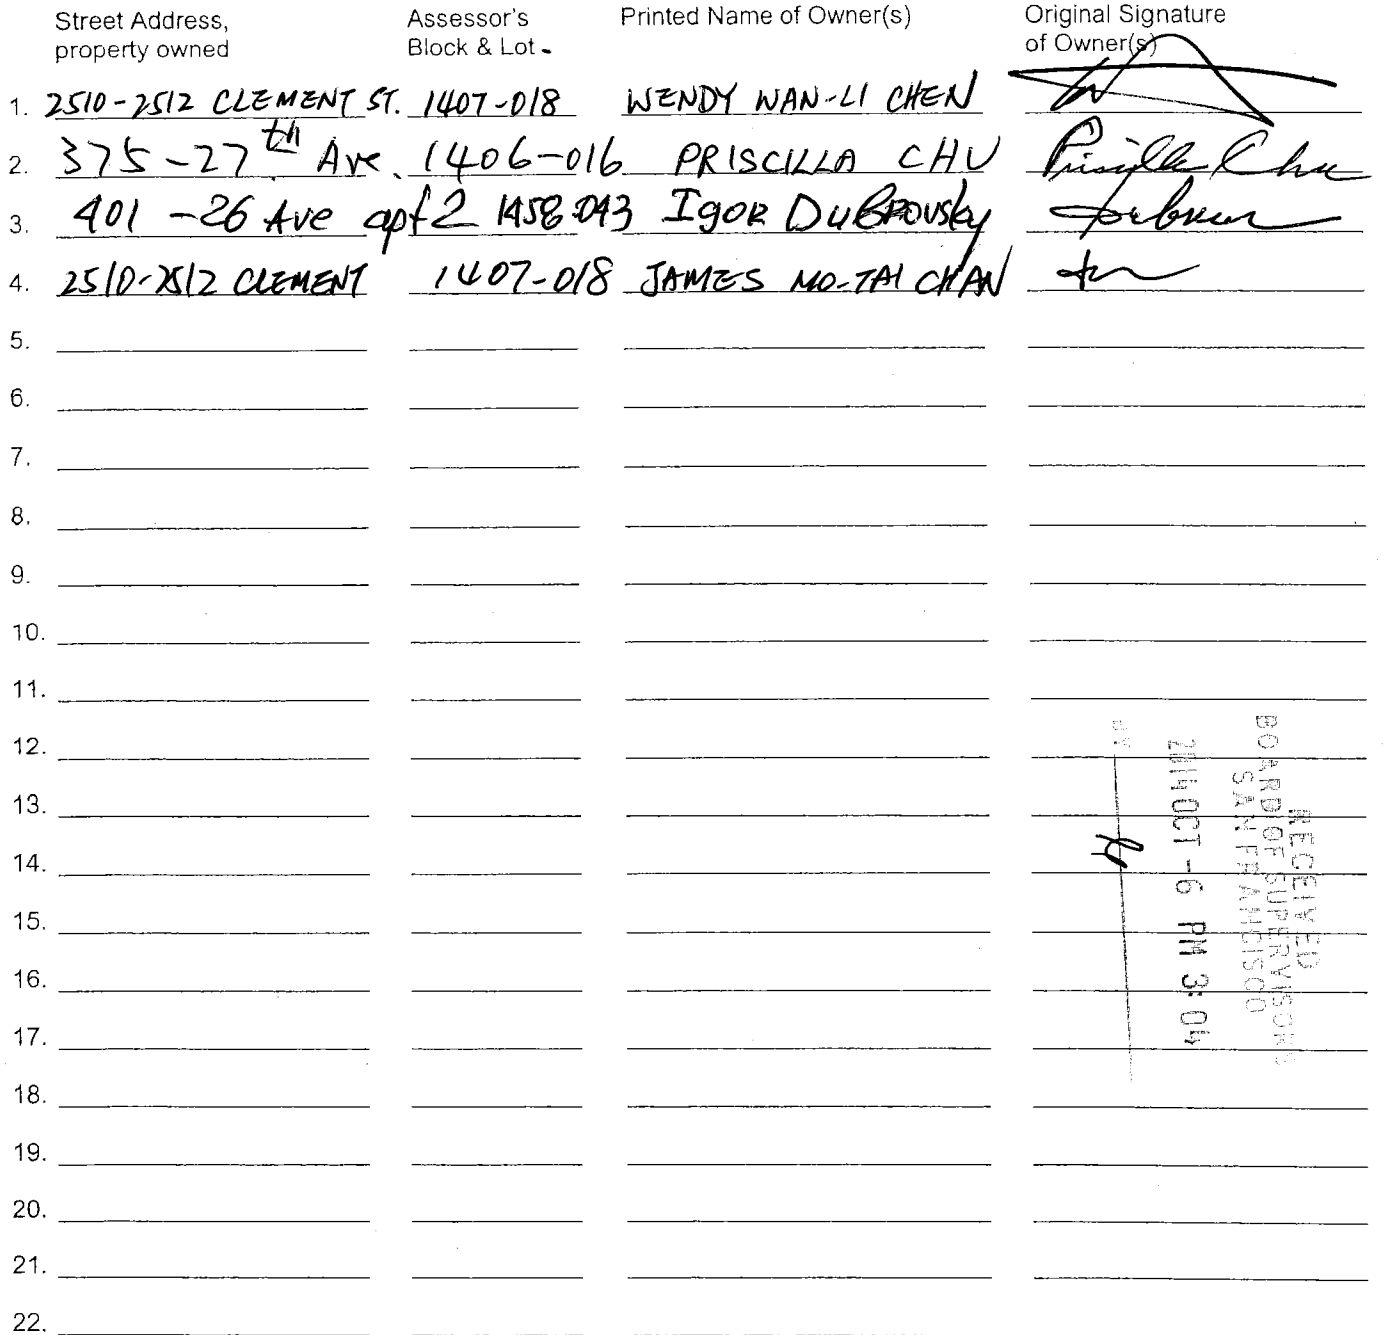 Street Address, Assessor's Printed Name of Owner(s) Original Signature
property owned Block & Lot - of Owner(s)
1. 2510-2512 CLEMENT ST. 1407-018 WENDY WAN-LI CHEN
2. 375-27th Ave. 1406-016 PRISCILLA CHU Priscilla Chu
3. 401-26 Ave apt 2 1458-043 Igor DuBrovsky
4. 2510-2512 CLEMENT 1407-018 JAMES MO-TAI CHAN
5.
6.
7.
8.
9.
10.
11.
12.
13.
14.
15.
16.
17.
18.
19.
20.
21.
22.
RECEIVED
BOARD OF SUPERVISORS
SAN FRANCISCO
2014 OCT -6 PM 3:04
BY